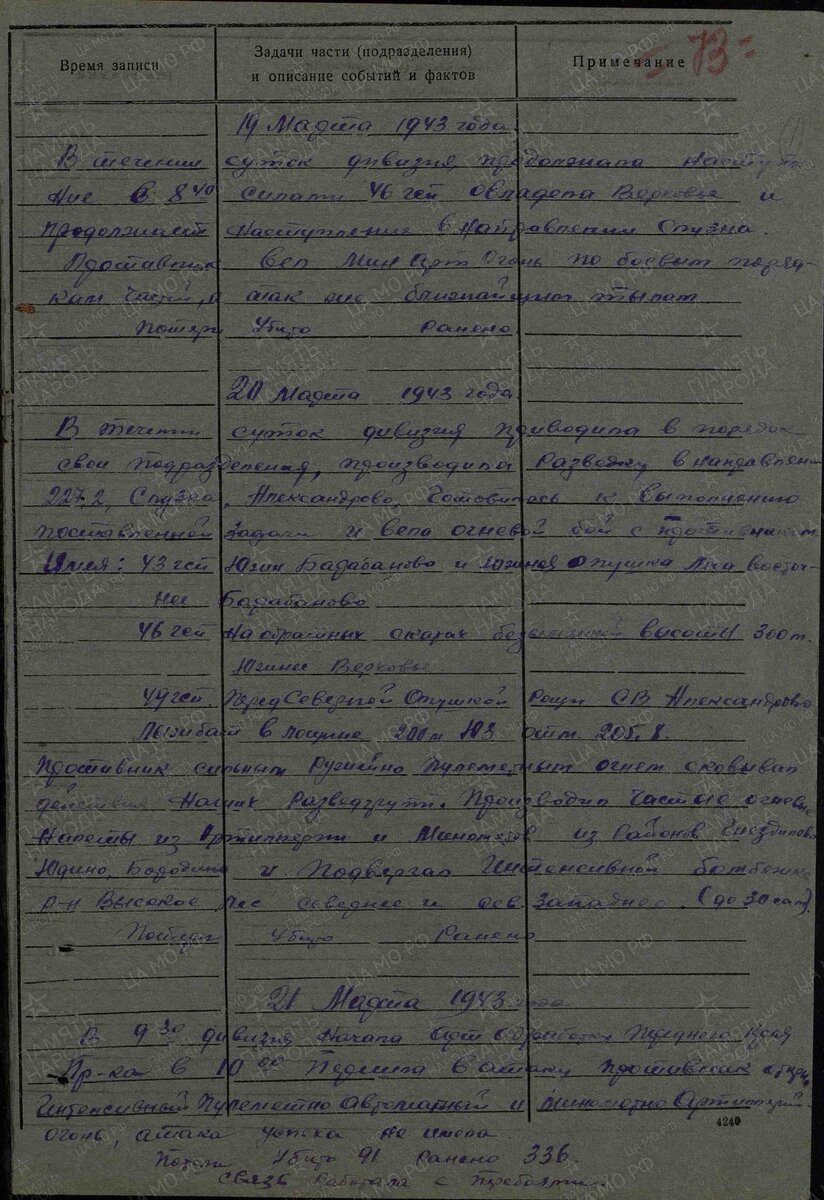 Время записи
Задачи части (подразделения)
и описание событий и фактов
Примечание
73
19 Марта 1943 года.
В течении суток дивизия продолжала наступле
ние В 8 40 силами 46 гсп овладела Верховье и
продолжает наступление в направлении Слузна.
Противник вел Мин Арт Огонь по боевым поряд-
кам частей, а так же ближайшим тылам
Потери Убито Ранено
20 Марта 1943 года
В течении суток дивизия приводила в порядок
свои подразделения, производила Разведку в направлении
227.2, Слузна, Александрово, Готовилась к выполнению
поставленной Задачи и вела огневой бой с противником
Имея: 43 гсп Южн Барабаново и южная опушка леса восточ-
нее Барабаново
46 гсп На обратных скатах безымянной высоты 300 м.
Южнее Верховье.
49 гсп Перед Северной Опушкой Рощи СВ Александрово
Лыжбат в лощине 200 м ЮЗ отм. 205.8.
Противник сильным Ружейно Пулеметным огнем сковывал
действия Наших Разведгрупп. Производил Частые огневые
Налеты из Артиллерии и Минометов из районов Гнездилово
Юдино, Бородино и Подвергал Интенсивной бомбежке
р-н Высокое, лес севернее и сев. западнее. (до 30 сам).
Потери Убито Ранено
21 Марта 1943 года
В 9 30 дивизия Начала Арт Обработку Переднего Края
Пр-ка в 10 00 Перешла в атаку Противник открыл
Интенсивный Пулеметно Автоматный и Минометно Артиллерий
4240
огонь, атака успеха не имела.
Потери Убито 91 Ранено 336.
Связь Работала с Перебоями.